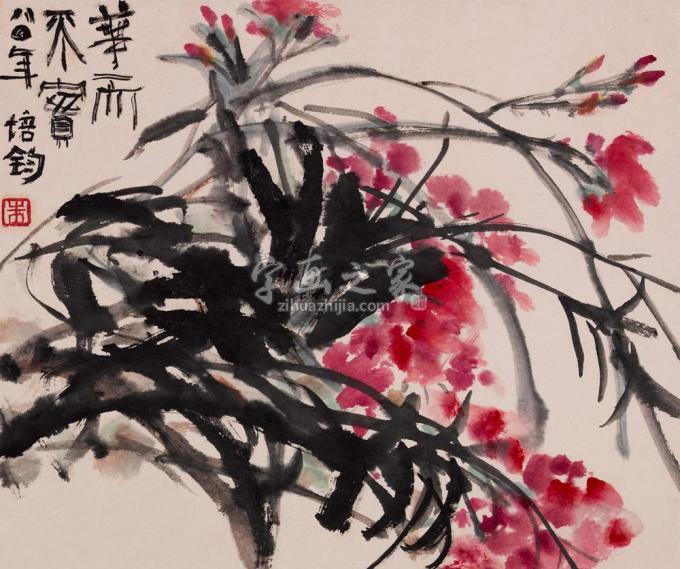 華而
不實
八〇年
培鈞
朱
字画之家
zihuazhijia.com